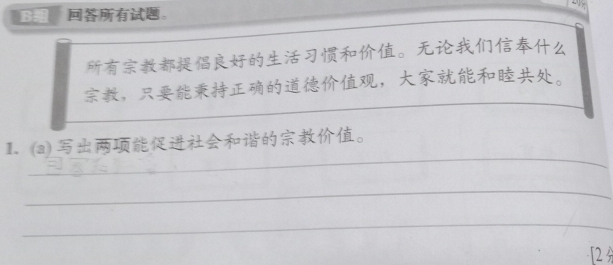 B组 回答所有试题。
所有宗教都提倡良好的生活习惯和价值。无论我们信奉什么
宗教，只要能秉持正确的道德价值观，大家就能和睦共处。
1. (a) 写出两项能促进社会和谐的宗教价值。
[2分